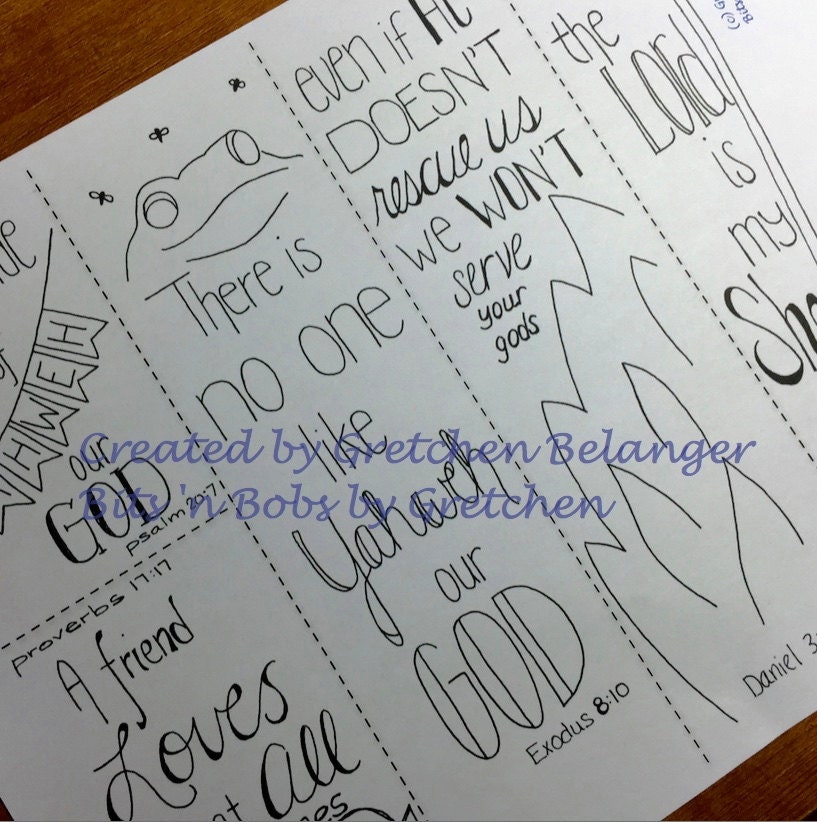 WEH
our
GOD
psalm 20:7
proverbs 17:17
A friend
Loves
at All
There is
no one
like
Yahweh
our
GOD
Exodus 8:10
even if He
DOESN'T
rescue us
we WON'T
serve
your
gods
Daniel 3:
the
Lord
is
my
Sh
(c) G
Bits
Created by Gretchen Belanger
Bits 'n Bobs by Gretchen